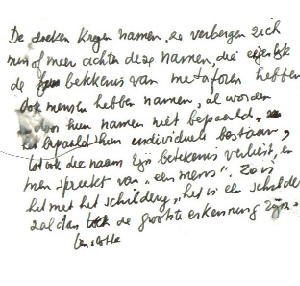 De doeken kregen namen, ze verbergen zich
min of meer achter deze namen, die eigenlijk
de betekenis van metaforen hebben
Ook mensen hebben namen, al worden
door hun namen niet bepaald,
het bepaald hun individuele bestaan,
tot ook de naam zijn betekenis verliest, en
men spreekt van „een mens". Zo is
het met het schilderij, „het is een schilderij"
zal dan de grootste erkenning zijn.